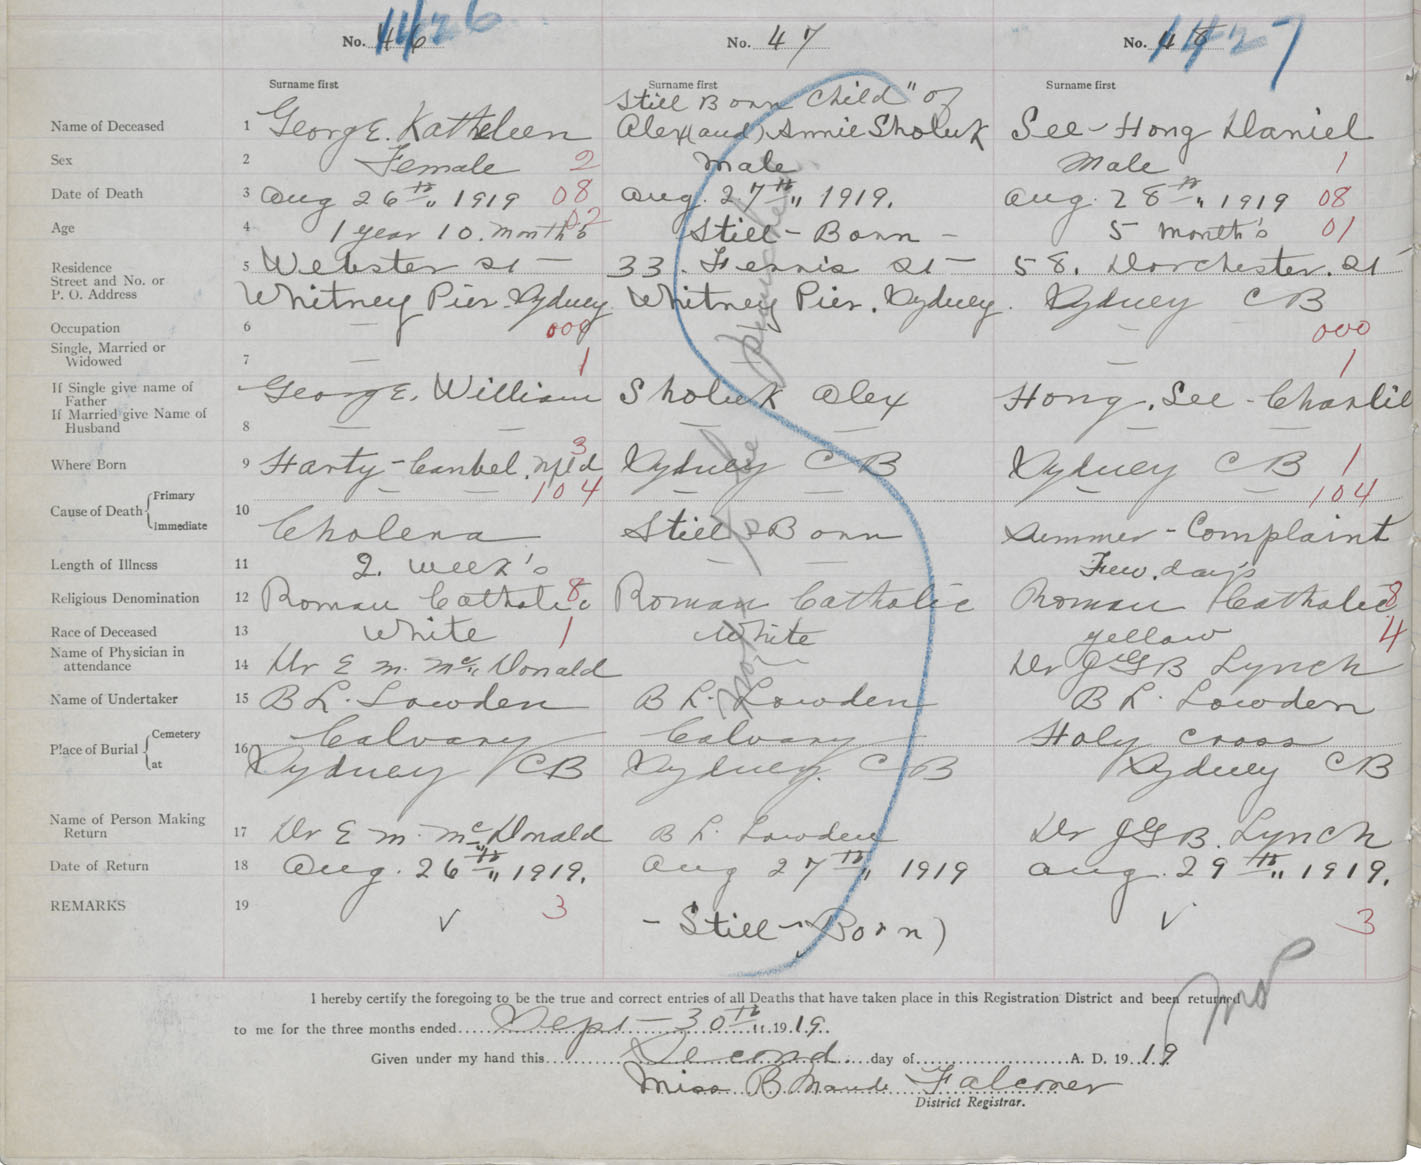 No. 46 1426 No. 47 No. 48 1427
Surname first Surname first Surname first
Still Born Child" of
Name of Deceased 1 George. Kathleen Alex (and) Annie Sholuk See-Hong Daniel
Sex 2 Female 2 Male Male 1
Date of Death 3 Aug 26th " 1919 08 Aug. 27th " 1919. Aug. 28th " 1919 08
Age 4 1 year 10. month's 02 Still-Born - 5 month's 01
Residence Street and No. or P. O. Address 5 Webster St - 33. Ferris St - 58. Dorchester. St
Whitney Pier. Sydney Whitney Pier. Sydney. Sydney CB
Occupation 6 — 000 — 000
Single, Married or Widowed 7 — 1 — 1
If Single give name of Father George. William Sholuk Alex Hong. See-Charlie
If Married give Name of Husband 8 — — — — — —
Where Born 9 Nfld 3 Sydney CB Sydney CB 1
Cause of Death Primary — — 104 — — — — 104
Immediate 10 Cholera Still-Born Summer-Complaint
Length of Illness 11 2. week's — — Few. day's
Religious Denomination 12 Roman Catholic 8 Roman Catholic Roman Catholic 8
Race of Deceased 13 White 1 White yellow 4
Name of Physician in attendance 14 Dr E M. Mc Donald — Dr JGB Lynch
Name of Undertaker 15 B L. Lowden B L. Lowden B L. Lowden
Place of Burial Cemetery 16 Calvary Calvary Holy Cross
at Sydney CB Sydney. CB Sydney CB
Name of Person Making Return 17 Dr E M. Mc Donald B L. Lowden Dr JGB. Lynch
Date of Return 18 Aug. 26th " 1919. Aug 27th " 1919 Aug. 29th " 1919.
REMARKS 19 √ 3 - Still-Born) √ 3
Not to be
I hereby certify the foregoing to be the true and correct entries of all Deaths that have taken place in this Registration District and been returned
to me for the three months ended Sept - 30th " 1919.
Given under my hand this Second day of A. D. 1919
Miss B Maude Falconer
District Registrar.